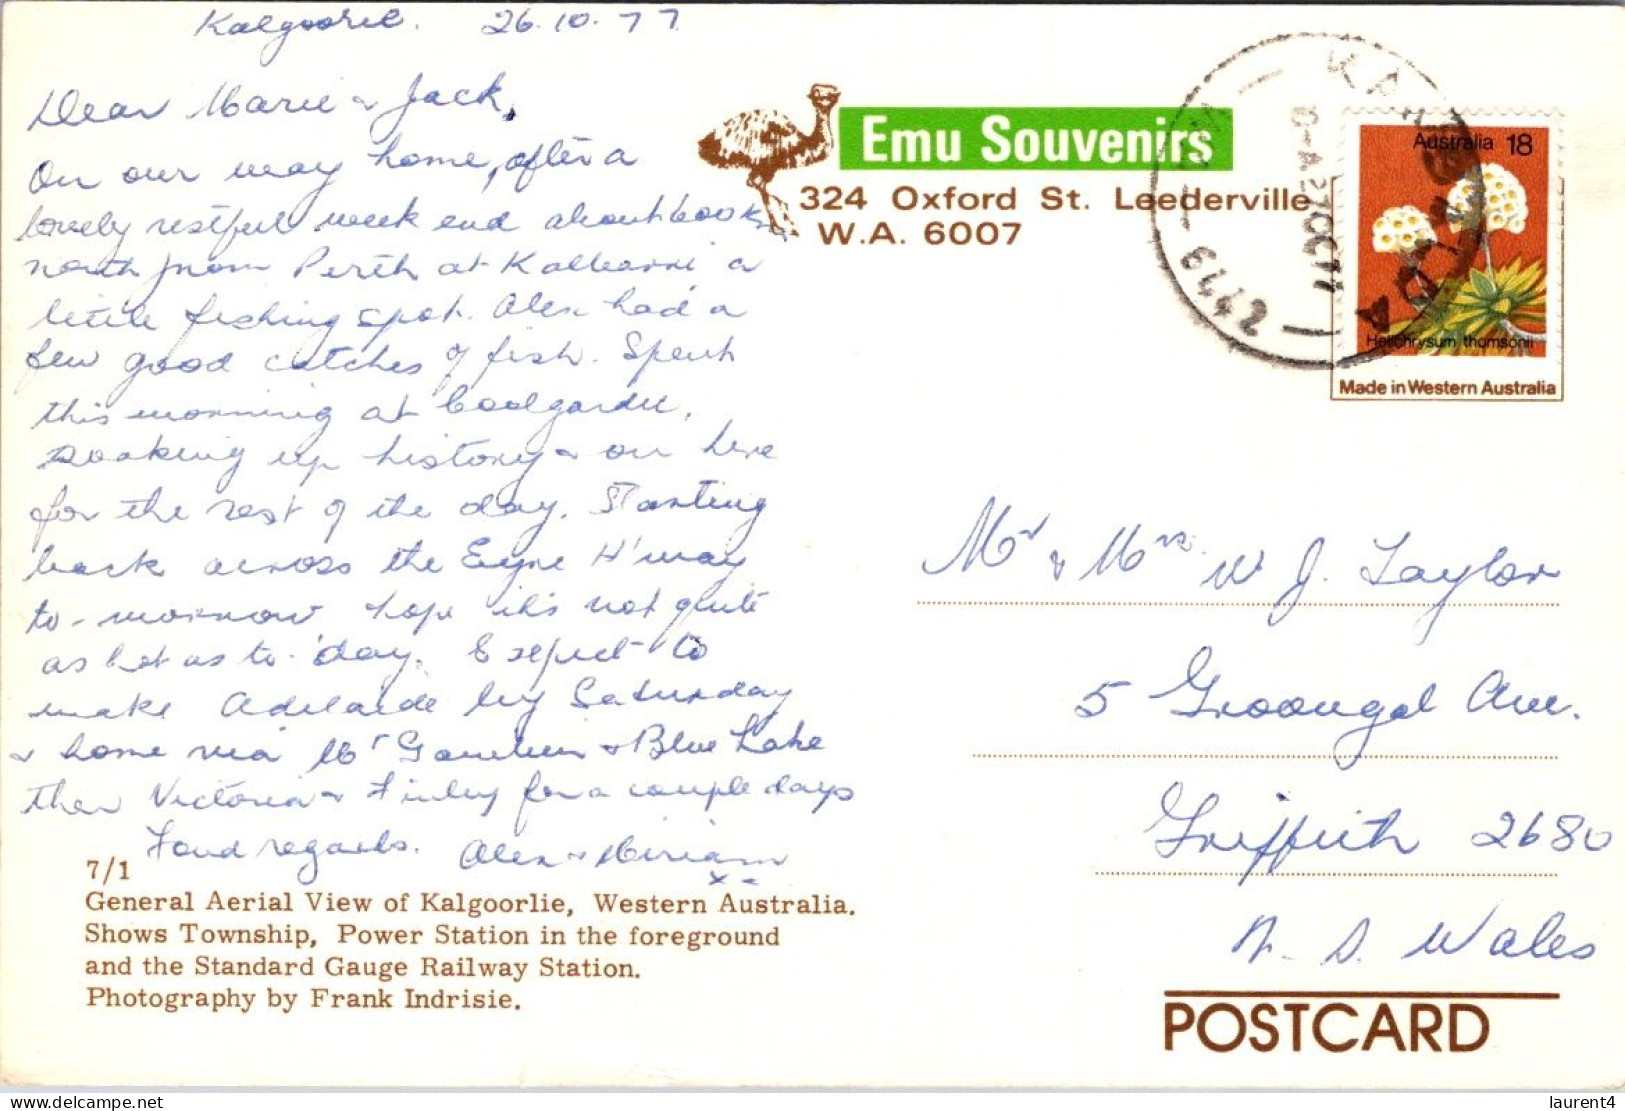 Kalgoorlie. 26.10.77
Dear Marie & Jack,
On our way home, after a
lovely restful week end about 600 kms
north from Perth at Kalbarri a
little fishing spot. Alex had a
few good catches of fish. Spent
this morning at Coolgardie,
soaking up history & on here
for the rest of the day. Starting
back across the Eyre H'way
to-morrow hope it's not quite
as hot as to-day. Expect to
make Adelaide by Saturday
& home via Mt Gambier & Blue Lake
then Victoria & Finley for a couple days
Fond regards. Alex & Miriam
x x
Emu Souvenirs
324 Oxford St. Leederville
W.A. 6007
Australia 18
Helichrysum thomsonii
Made in Western Australia
Mr & Mrs W J. Taylor
5 Groongal Ave.
Griffith 2680
N. S. Wales
7/1
General Aerial View of Kalgoorlie, Western Australia.
Shows Township, Power Station in the foreground
and the Standard Gauge Railway Station.
Photography by Frank Indrisie.
POSTCARD
laurent4